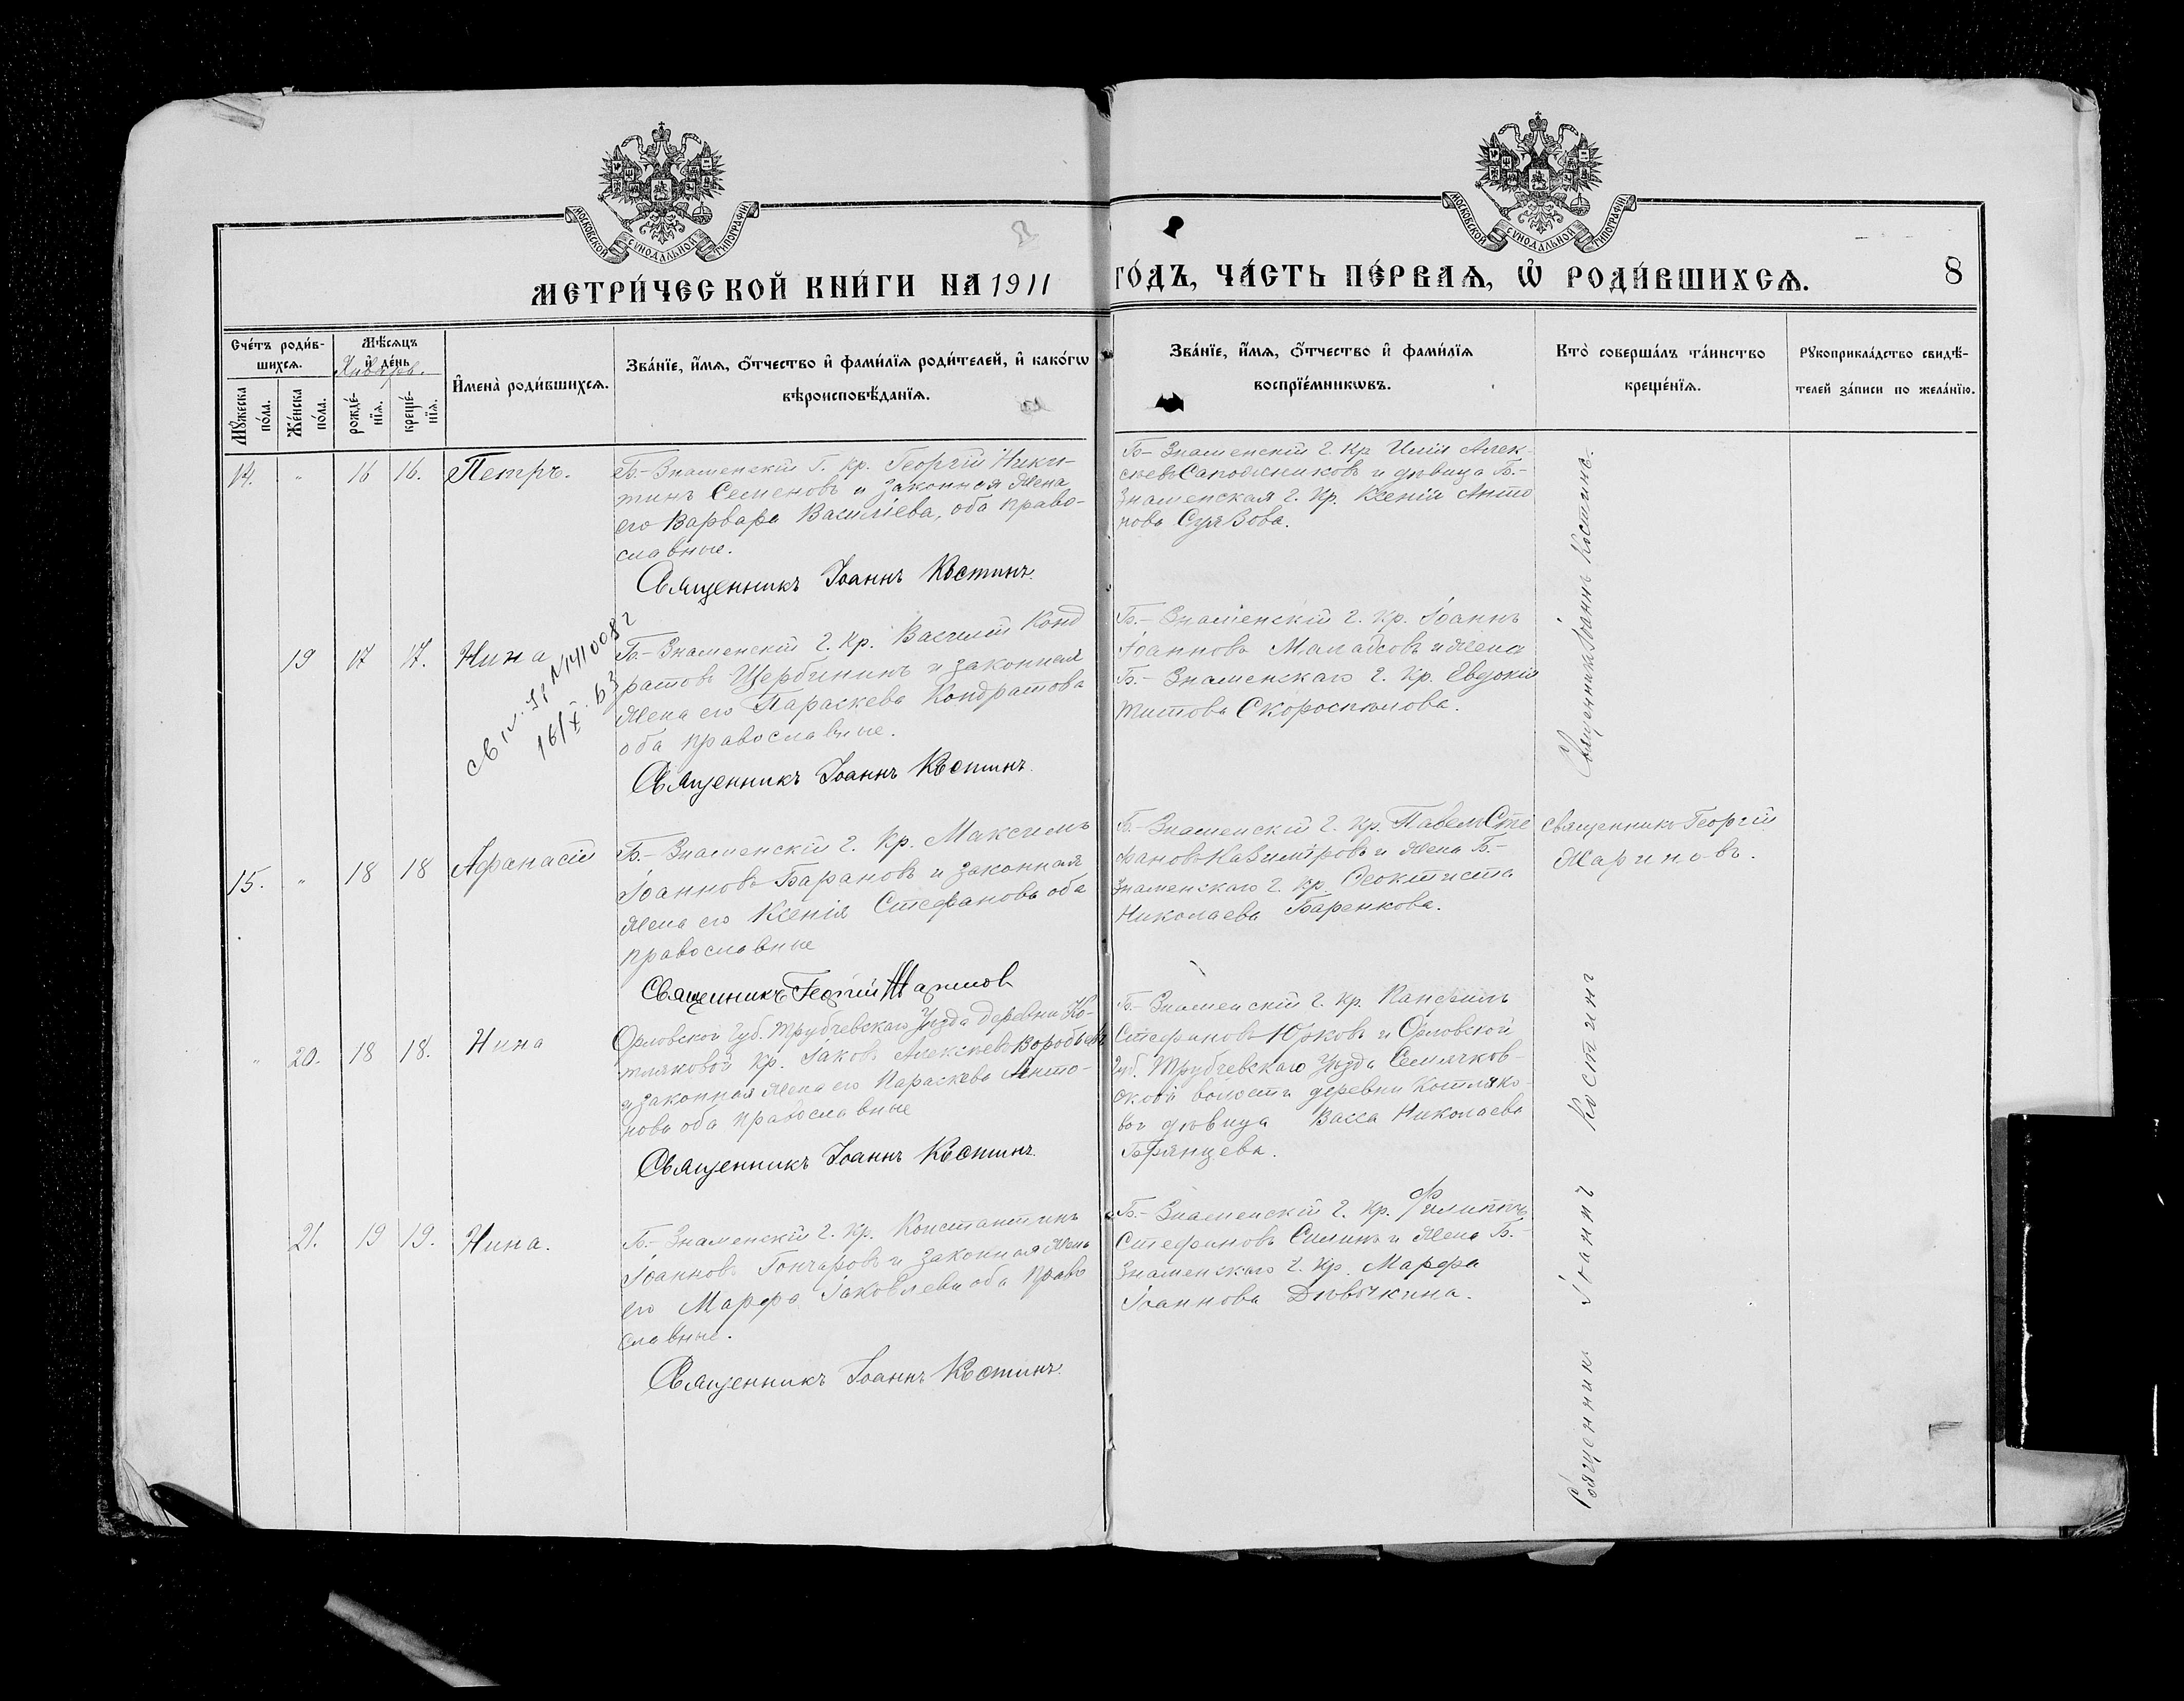 МОСКОВСКОЙ СУНОДАЛЬНОЙ ТИПОГРАФІИ
МОСКОВСКОЙ СУНОДАЛЬНОЙ ТИПОГРАФІИ
МЕТРИ́ЧЕСКОЙ КНИ́ГИ НА 1911 ГО́ДЪ, ЧА́СТЬ ПЕ́РВАѦ, Ѽ РОДИ́ВШИХСѦ.
8
Сче́тъ роди́в-
шихсѧ.
Мѣ́сяцъ
и҆ де́нь
Январь.
Мꙋ́жеска
по́ла.
Же́нска
по́ла.
рожде́-
нїѧ.
креще́-
нїѧ.
И҆мена̀ роди́вшихсѧ.
Зва́нїе, и҆́мѧ, ѻ҆́тчество и҆ фами́лїѧ роди́телей, и҆ како́гѡ
вѣроисповѣ́данїѧ.
Зва́нїе, и҆́мѧ, ѻ҆́тчество и҆ фами́лїѧ
воспрїе́мникѡвъ.
Кто̀ соверша́лъ та́инство
креще́нїѧ.
Рꙋкоприкла́дство свидѣ́-
телей за́писи по жела́нїю.
14. " 16 16. Петръ.
Б.-Знаменскій г. кр. Георгій Ники-
тинъ Семеновъ и законная жена
его Варвара Василіева, оба право-
славные.
Священникъ Іоаннъ Костинъ.
Б-Знаменскій г. кр. Илія Алек-
сѣевъ Сапожниковъ и дѣвица Б.-
Знаменская г. кр. Ксенія Анто
нова
Священникъ Іоаннъ Костинъ.
19 17 17. Нина
16/X. 63
Б-Знаменскій г. кр. Василій Конд
ратовъ Щербининъ и законная
жена его Параскева Кондратова
оба православные.
Священникъ Іоаннъ Костинъ.
Б.-Знаменскій г. кр. Іоаннъ
Іоанновъ и жена
Б.-Знаменскаго г. кр. Евдокія
Титова Скороспѣлова.
15. " 18 18 Афанасій
Б.-Знаменскій г. кр. Максимъ
Іоанновъ Барановъ и законная
жена его Ксенія Стефанова оба
православные
Священникъ Георгій Жариновъ
Б.-Знаменскій г. кр. Павелъ Сте
фановъ Казиміровъ и жена Б.-
Знаменскаго г. кр. Ѳеоктиста
Николаева Баренкова.
Священникъ Георгій
Жариновъ.
" 20. 18 18. Нина
Орловской губ. Трубчевскаго уѣзда деревни Ко-
тляковой кр. Іаковъ Алексѣевъ Воробьевъ
и законная жена его Параскева Анто-
нова оба православные
Священникъ Іоаннъ Костинъ.
Б.-Знаменскій г. кр. Панфилъ
Стефановъ Юрковъ и Орловской
губ. Трубчевскаго уѣзда Семячков-
ской волости деревни Котляко-
вой дѣвица Васса Николаева
Брянцева.
Священникъ Іоаннъ Костинъ
21. 19 19. Нина.
Б.-Знаменскій г. кр. Константинъ
Іоанновъ Гончаровъ и законная жена
его Марфа Іаковлева оба право
славные.
Священникъ Іоаннъ Костинъ.
Б.-Знаменскій г. кр. Филиппъ
Стефановъ Силинъ и жена Б.-
Знаменскаго г. кр. Марфа
Іоаннова Дѣвочкина.